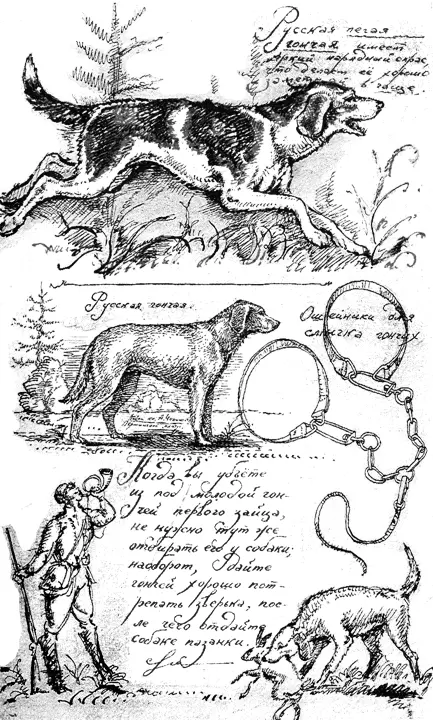 Русская пегая
гончая имеет
яркий нарядный окрас,
что делает её хорошо
заметной в чаще.
Русская гончая.
Ошейники для
смычка гончих
Когда вы убьёте
из под молодой гон-
чей первого зайца,
не нужно тут же
отбирать его у собаки;
наоборот, дайте
гончей хорошо пот-
репать зверька, пос-
ле чего отдайте
собаке пазанки.